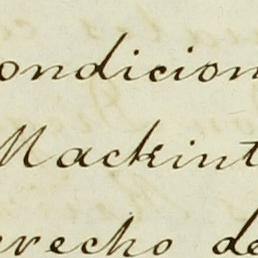 ondicion
Mackint
erecho de